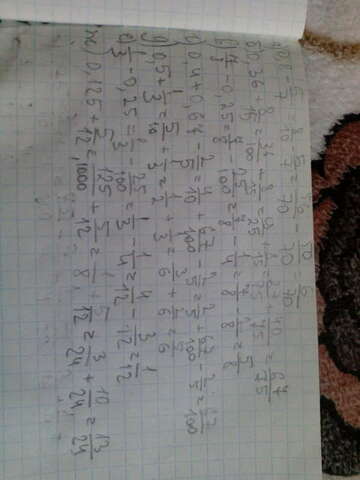 0,8 - 5/7 = 8/10 - 5/7 = 56/70 - 50/70 = 6/70
0,36 + 8/15 = 36/100 + 8/15 = 9/25 + 8/15 = 27/75 + 40/75 = 67/75
7/8 - 0,25 = 7/8 - 25/100 = 7/8 - 1/4 = 7/8 - 2/8 = 5/8
0,4 + 0,67 - 2/5 = 4/10 + 67/100 - 2/5 = 2/5 + 67/100 - 2/5 = 67/100
д) 0,5 + 1/3 = 5/10 + 1/3 = 1/2 + 1/3 = 3/6 + 2/6 = 5/6
е) 1/3 - 0,25 = 1/3 - 25/100 = 1/3 - 1/4 = 4/12 - 3/12 = 1/12
ж) 0,125 + 5/12 = 125/1000 + 5/12 = 1/8 + 5/12 = 3/24 + 10/24 = 13/24